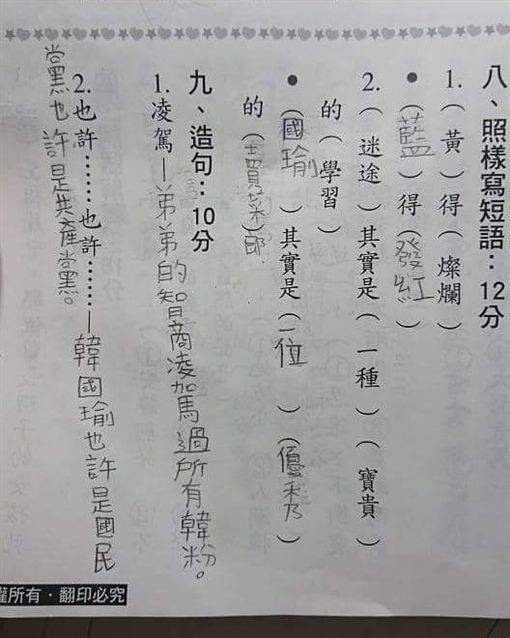 八、照樣寫短語：12分
1.（黃）得（燦爛）
●（藍）得（發紅）
2.（迷途）其實是（一種）（寶貴）
的（學習）
●（國瑜）其實是（一位）（優秀）
的（賣菜）郎
九、造句：10分
1.凌駕—弟弟的智商凌駕過所有韓粉。
2.也許……也許……—韓國瑜也許是國民
黨也許是共產黨。
權所有．翻印必究